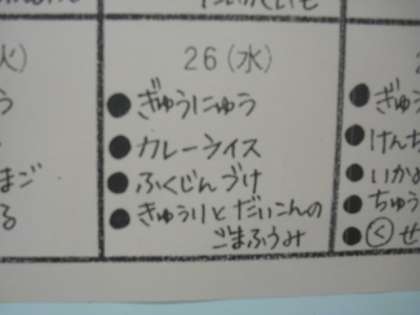 26(水)
●ぎゅうにゅう
●カレーライス
●ふくじんづけ
●きゅうりとだいこんの
ごまふうみ
火)
う
まご
る
●ぎゅ
●けんち
●いかめ
●ちゅう
●くせ